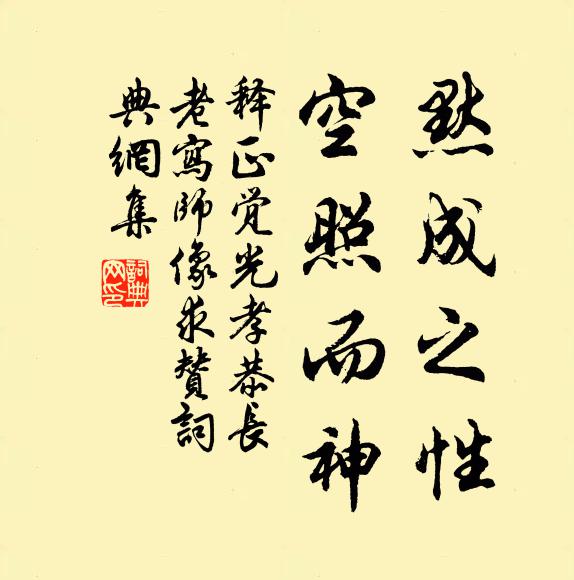 默成之性
空照而神
释正觉光孝恭長
老寫師像求贊詞
典網集
詞典網印